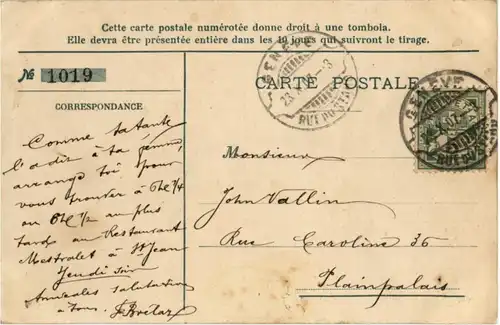 Cette carte postale numérotée donne droit à une tombola.
Elle devra être présentée entière dans les 10 jours qui suivront le tirage.
№ 1019
CARTE POSTALE
CORRESPONDANCE
GENÈVE
RUE DU STAND
GENÈVE
RUE DU STAND
Comme ta tante
l'a dit à ta femme,
arrange toi pour
vous trouver à 6h 1/4
au 6h 1/2 au plus
tard au Restaurant
Mestralet à St Jean
Jeudi soir
Amicales salutations
à tous.
Monsieur
John Vallin
Rue Caroline 36
Plainpalais